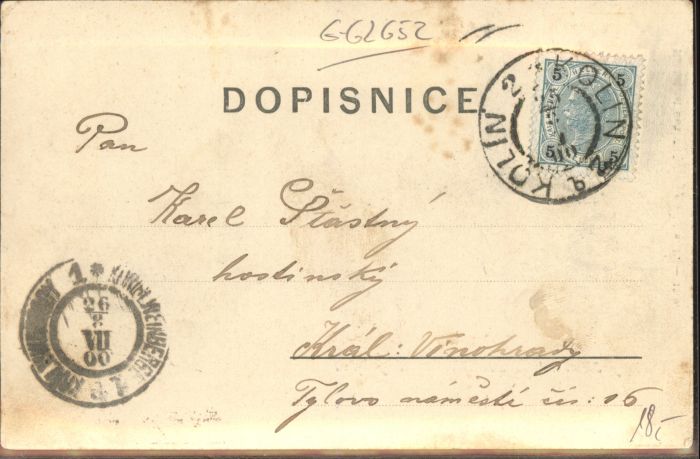 G-G2652
DOPISNICE
KOLIN 2 KOLIN 2
5 5
5 5
Pan
Karel Šťastný
hostinský
Král: Vinohrady
Tylovo náměstí čís: 16
18,-
1 * KÖNIGL. WEINBERGE 1
26
8
VII
00